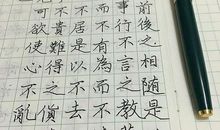 前後之相隨是
事行不言之教
而不有為而不
居是以不去不
貴難得之貨不
可欲使心不亂